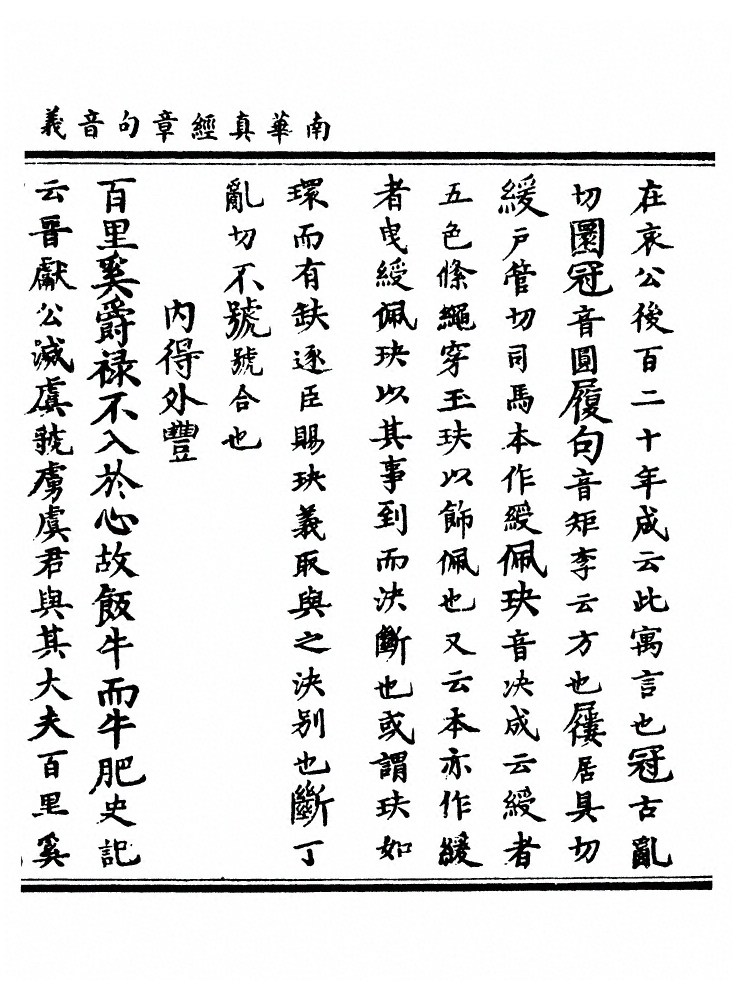 南華真經章句音義
在哀公後百二十年成云此寓言也冠古亂
切圜冠音圓履句音矩李云方也屨居具切
緩戶管切司馬本作綬佩玦音决成云綬者
五色絛繩穿玉玦以飾佩也又云本亦作緩
者曳綬佩玦以其事到而決斷也或謂玦如
環而有缺逐臣賜玦義取與之決別也斷丁
亂切不號號合也
內得外豐
百里奚爵禄不入於心故飯牛而牛肥史記
云晉獻公滅虞虢虜虞君與其大夫百里奚